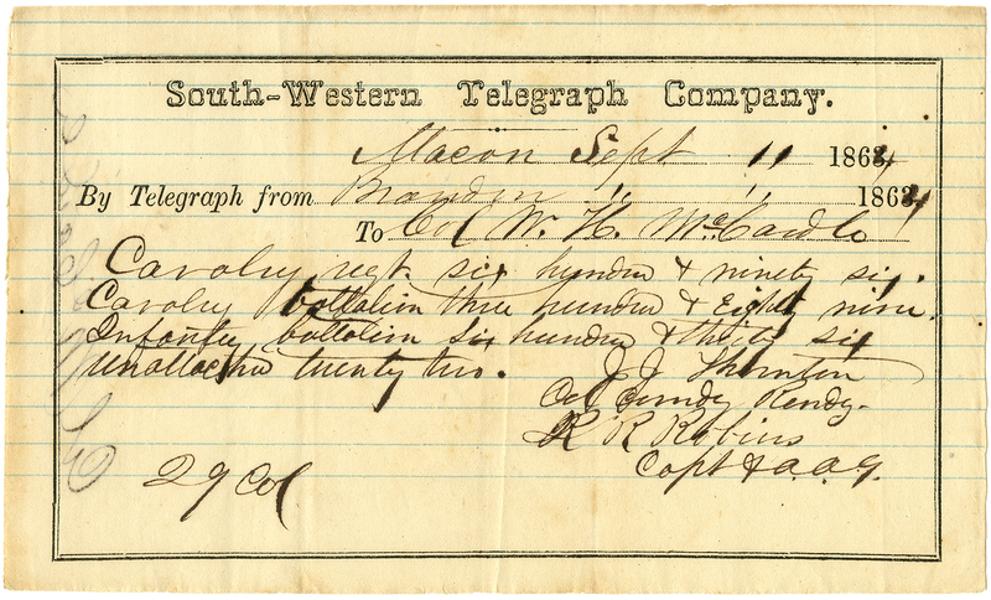 South-Western Telegraph Company.
Macon Sept 11 1864
By Telegraph from Brandon " " 1864
To Col W. H. McCardle
Cavalry regt. six hundred & ninety six.
Cavalry battalion three hundred & Eighty nine.
Infantry battalion six hundred & thirty six
Unattached twenty two. J J Thornton
Col Comdg Rendz.
R R Robins
Capt & A.A.G.
29 Col